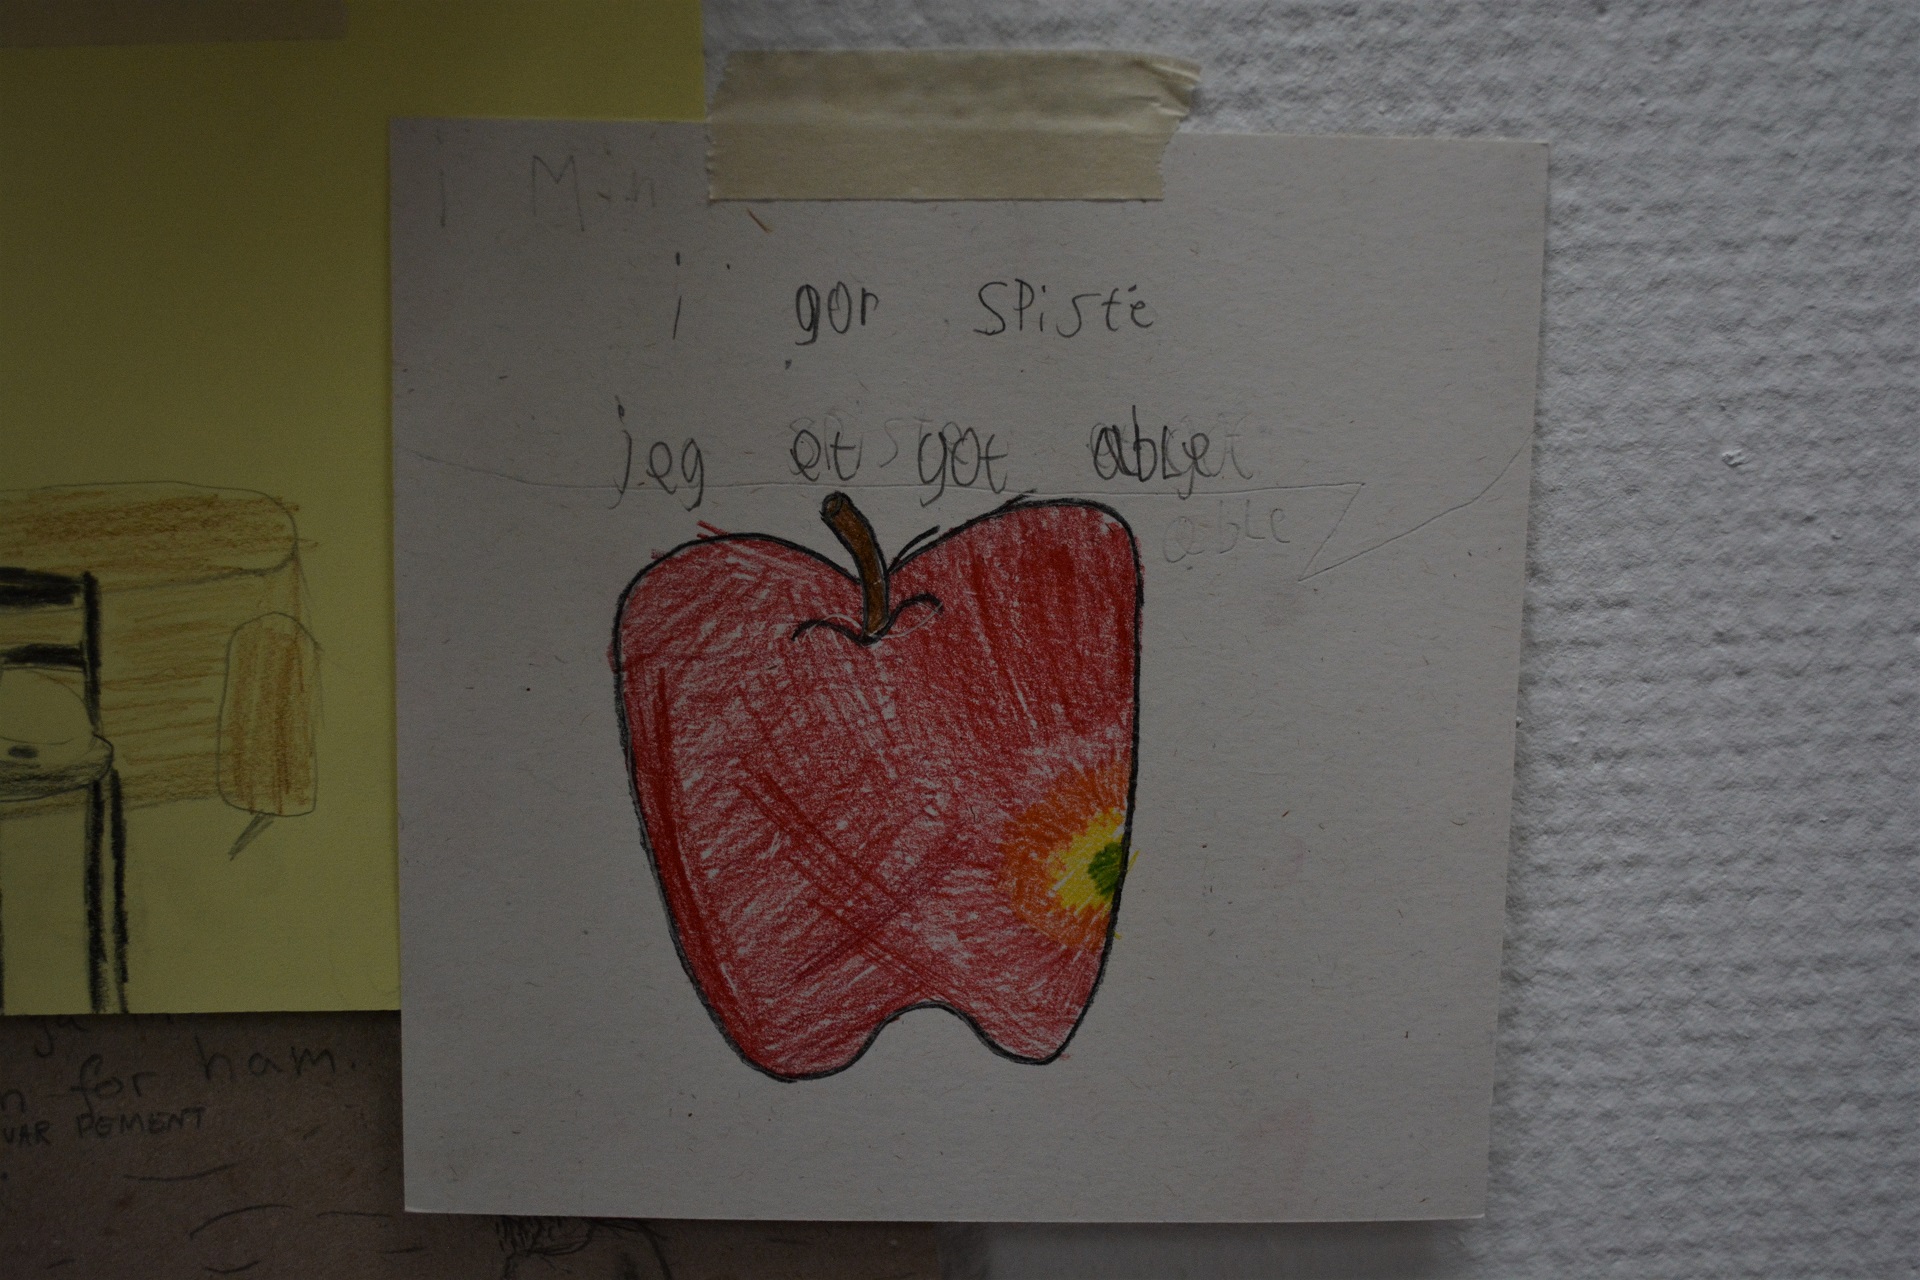 i gor spiste
jeg et got able
able
ham.
n for
VAR DEMENT